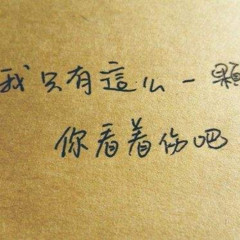 我只有這么一顆
你看着伤吧